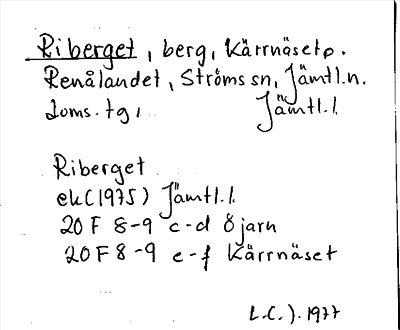 Riberget, berg, Kärrnäset o.
Renålandet, Ströms sn, Jämtl.n.
Doms. tg, Jämtl.l.
Riberget
ek (1975) Jämtl.l.
20 F 8-9 c-d Öjarn
20 F 8-9 e-f Kärrnäset
L.C.J. 1977